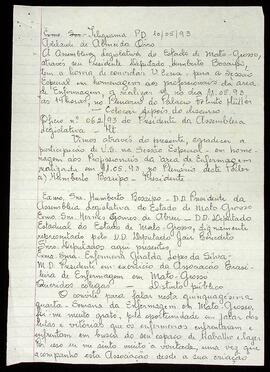 Telegrama PD 20/05/93
Adelaide de Almeida Orro
A Assembleia Legislativa do Estado de Mato-Grosso,
através seu Presidente Deputado Humberto Bosaipo,
tem a honra de convidar V. Exma. para a Sessão
Especial em homenagem aos profissionais da área
de Enfermagem, a realizar-se no dia 21.05.93
as 14 horas, no Plenário do Palácio
depois do discurso
Ofício nº 062/93 do Presidente da Assembleia
Legislativa - Mt
Vimos através do presente, agradecer a
participação de V.S. na Sessão Especial - em home-
nagem aos Profissionais da área de Enfermagem
realizada em 21.05.93 no Plenário desta
a) Humberto Bosaipo - Presidente
Exmo. Snr. Humberto Bosaipo - D.D Presidente da
Assembleia Legislativa do Estado de Mato Grosso
Exmo. Snr. Hermes Gomes de Abreu - D.D. Deputado
Estadual do Estado de Mato-Grosso, dignamente
representado pelo D.D. Deputado Jair Benedito
Snrs. Deputados aqui presentes
Exma. Snra. Enfermeira Giralda Lopes da Silva -
M.D. Presidente em exercício da Associação Brasi-
leira de Enfermagem em Mato-Grosso
Queridos colegas Distinto público
O convite para falar nesta quinquagésima
quarta - Semana de Enfermagem em Mato-Grosso,
foi-me muito grato, pela oportunidade em falar das
lutas e vitórias que os enfermeiros enfrentaram e
enfrentam, em busca do seu espaço de trabalho e lazer.
Por isso eu me sinto muito a vontade, uma vez que
acompanho esta Associação desde a sua criação